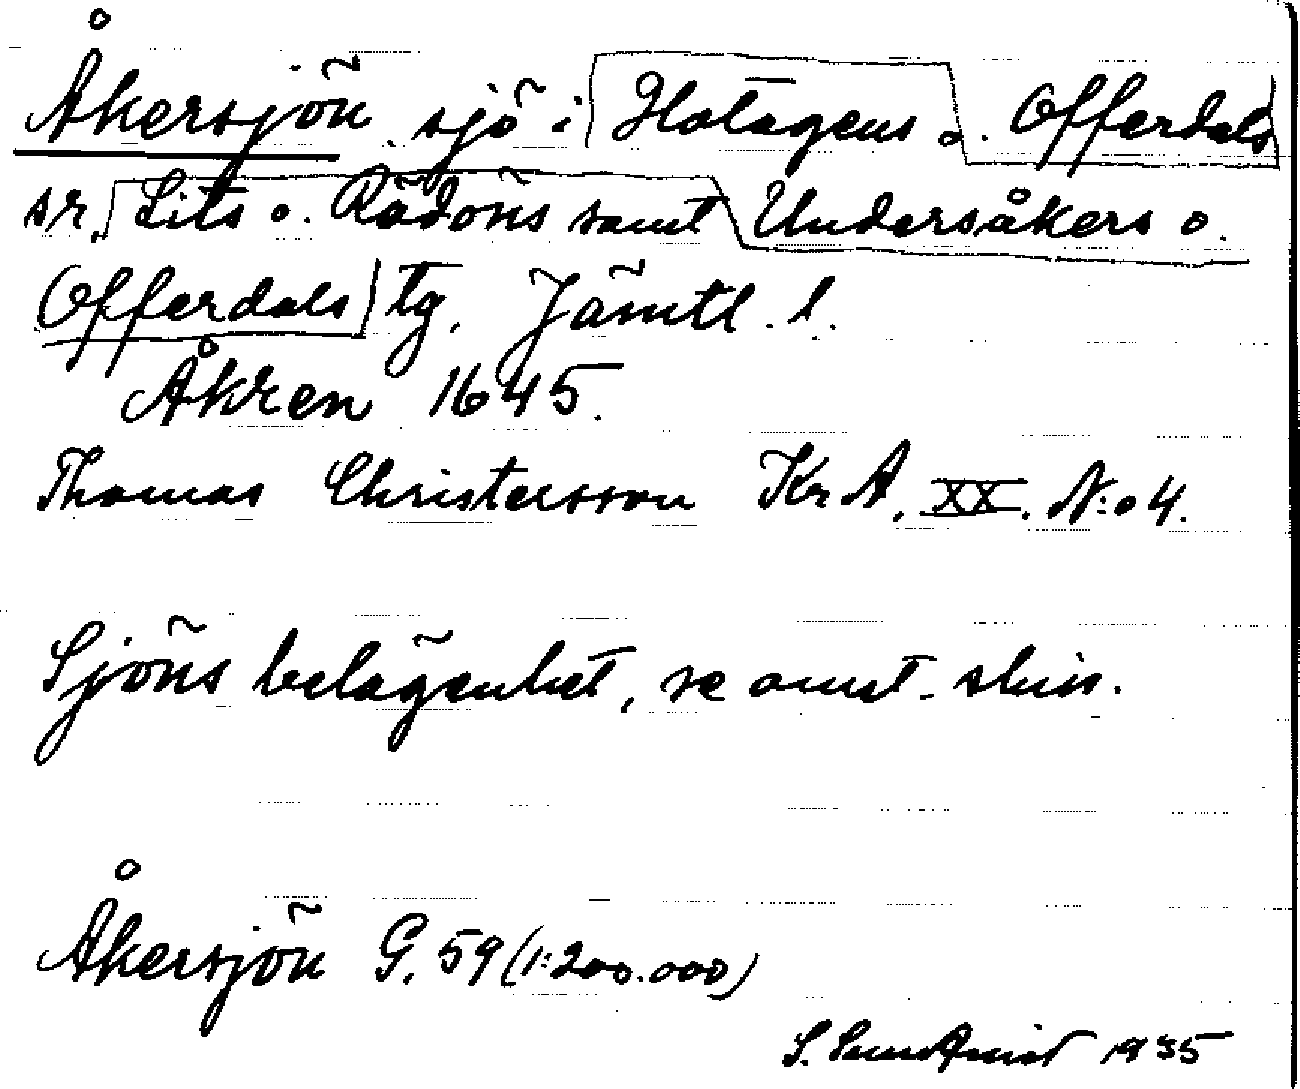 Åkersjön sjö i Hotagens o. Offerdals
sr, Lits o. Rödöns samt Undersåkers o.
Offerdals tg, Jämtl. l.
Åkren 1645.
Thomas Christersson Kr A. XX. N:o 4.
Sjöns belägenhet, se omst. skiss.
Åkersjön G. 59 (1:200.000)
S. Sundqvist 1935